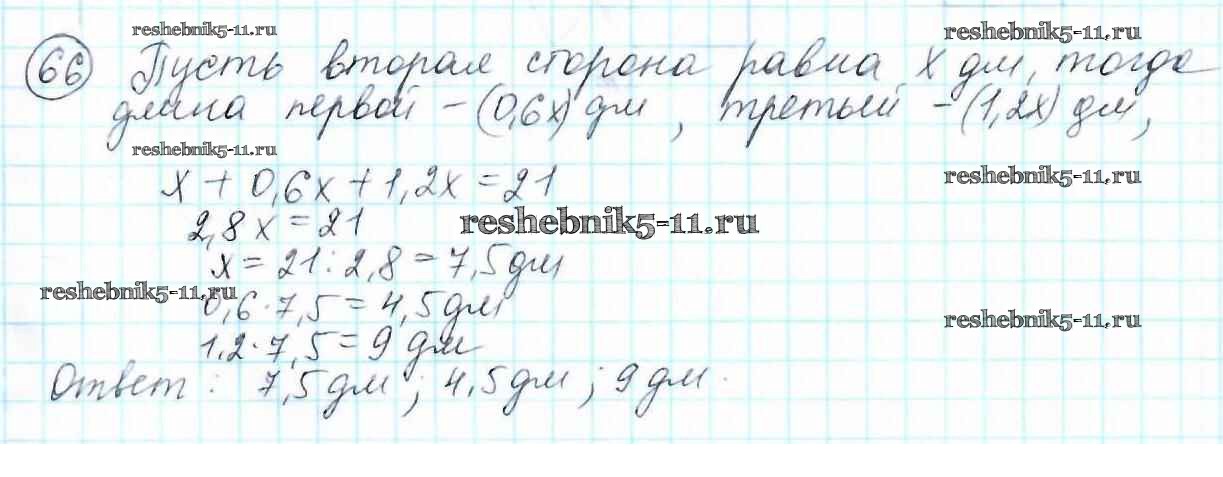 reshebnik5-11.ru reshebnik5-11.ru
66 Пусть вторая сторона равна x дм, тогда
длина первой - (0,6x) дм, третьей - (1,2x) дм,
reshebnik5-11.ru
x + 0,6x + 1,2x = 21 reshebnik5-11.ru
2,8x = 21 reshebnik5-11.ru
x = 21 : 2,8 = 7,5 дм
reshebnik5-11.ru
0,6 · 7,5 = 4,5 дм reshebnik5-11.ru
1,2 · 7,5 = 9 дм
Ответ : 7,5 дм ; 4,5 дм ; 9 дм.